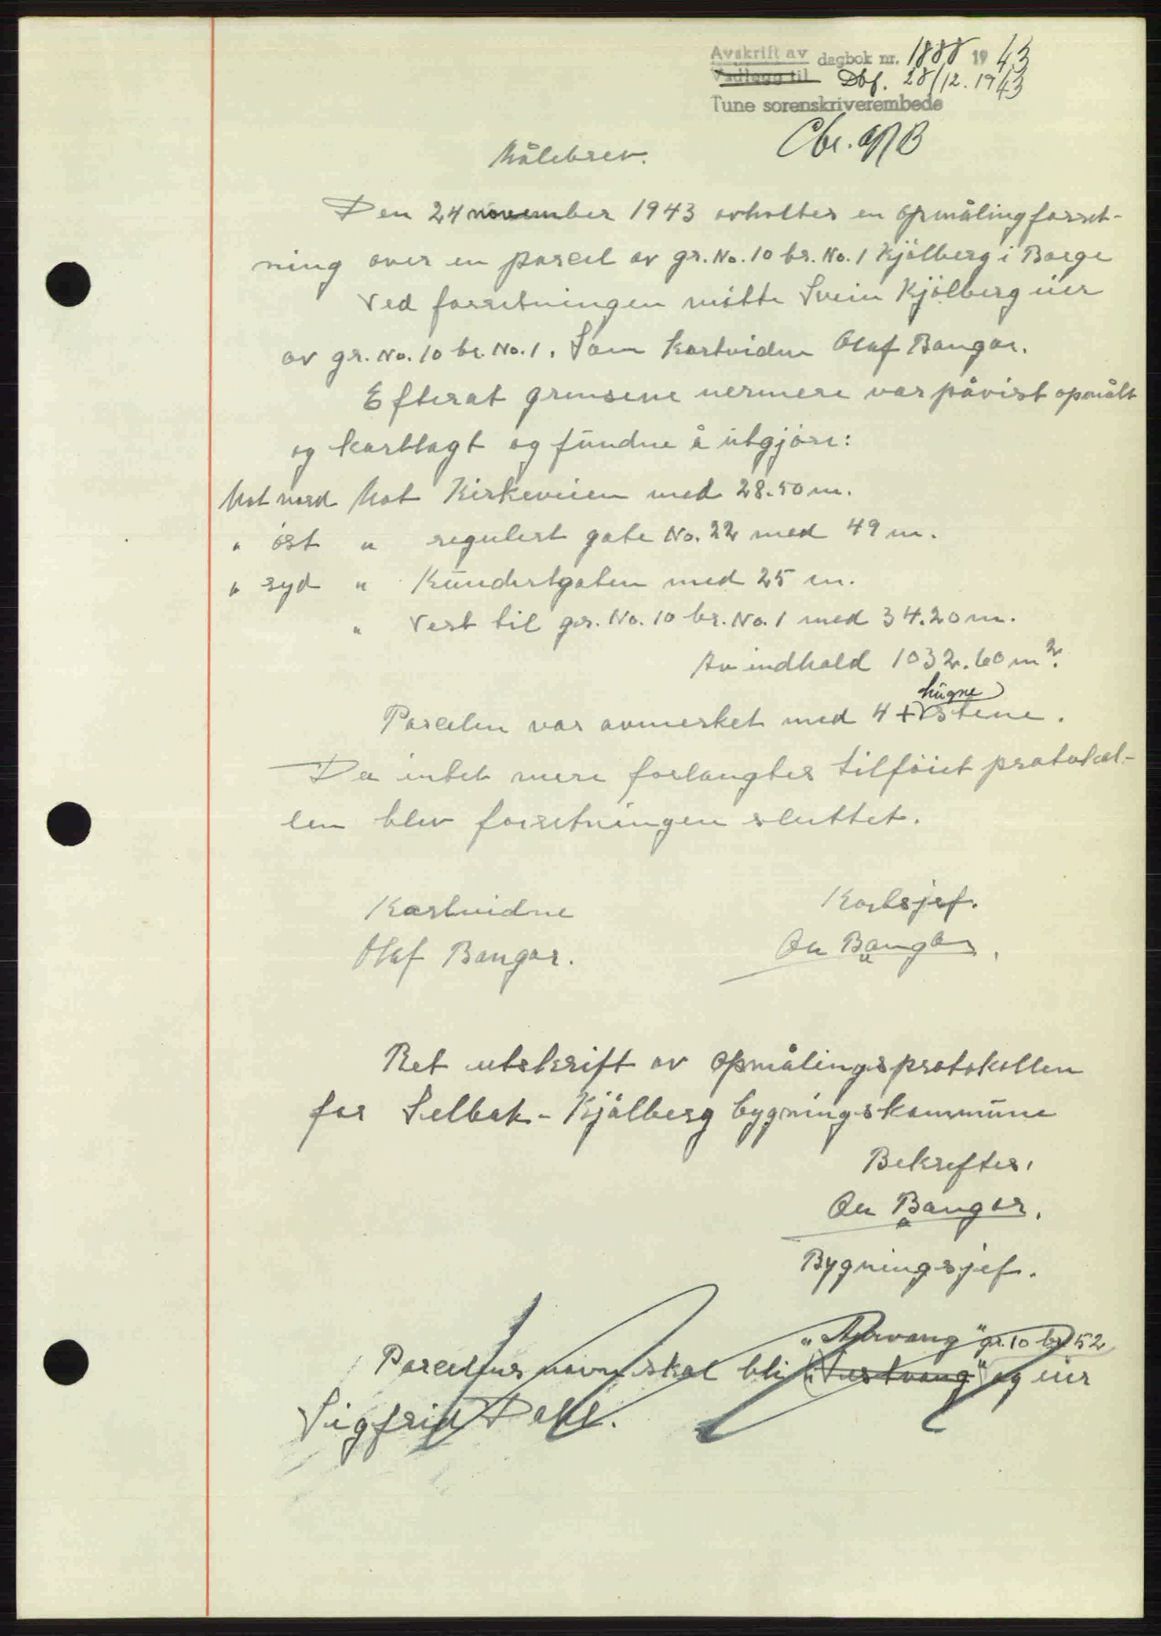 Avskrift av dagbok nr. 1888 1943
Vedlegg til Dbf. 28/12. 1943
Tune sorenskriverembede
Målebrev.
Den 24 november 1943 avholtes en opmålingforret-
ning over en parcel av gr. No. 10 br. No. 1 Kjølberg i Borge
Ved forretningen møtte Svein Kjölberg eier
av gr. No. 10 br. No. 1. Som kartvidne Olaf Bangar.
Efterat grensene nermere var påvist opmålt
og kartlagt og fundne å utgjöre:
Mot nord Mot Kirkeveien med 28.50 m.
" öst " regulert gate No. 22 med 49 m.
" syd " Kundertgaten med 25 m.
" Vest til gr. No. 10 br. No. 1 med 34.20 m.
Av indhold 1032.60 m².
hugne
Parcelen var avmerket med 4 + stene.
Da intet mere forlangtes tilföiet protokol-
len blev forretningen sluttet.
Kartvidne Kartsjef.
Olaf Bangar. Bangar.
Ret utskrift av opmålingsprotokollen
for Selbak - Kjölberg bygningskommune
Bekreftes,
Bangar.
Bygningsjef.
gr. 10 br 52
Parcelens navn skal bli og eier
Sigfrid Dahl.